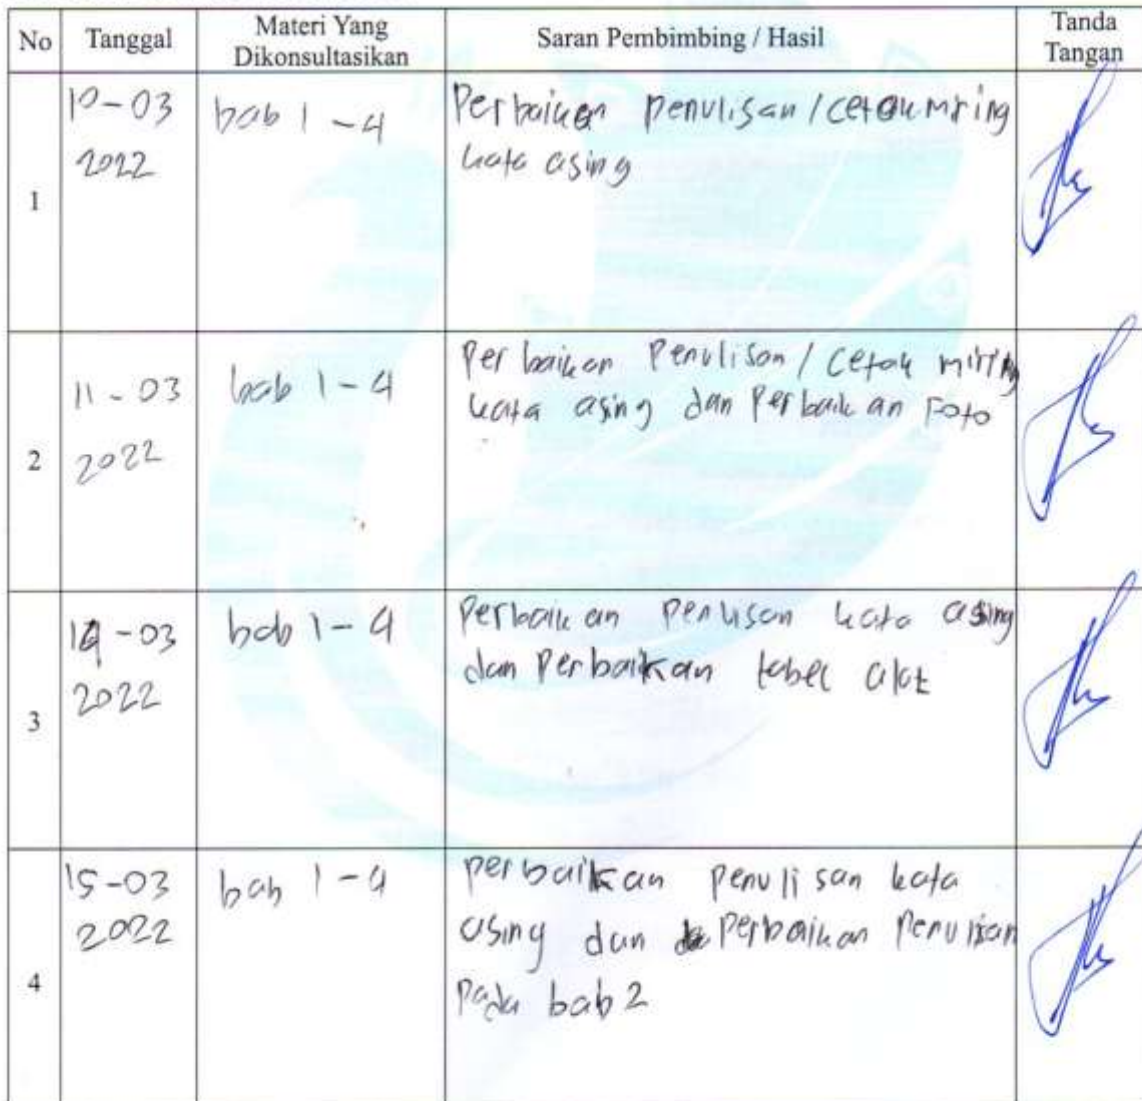 No Tanggal Materi Yang Dikonsultasikan Saran Pembimbing / Hasil Tanda Tangan
1 10-03 2022 bab 1-4 Perbaikan penulisan / cetak miring
kata asing
2 11-03 2022 bab 1-4 Perbaikan Penulisan / cetak miring
kata asing dan Perbaikan Foto
3 14-03 2022 bab 1-4 Perbaikan penulisan kata asing
dan Perbaikan tabel alat
4 15-03 2022 bab 1-4 perbaikan penulisan kata
asing dan Perbaikan Penulisan
pada bab 2